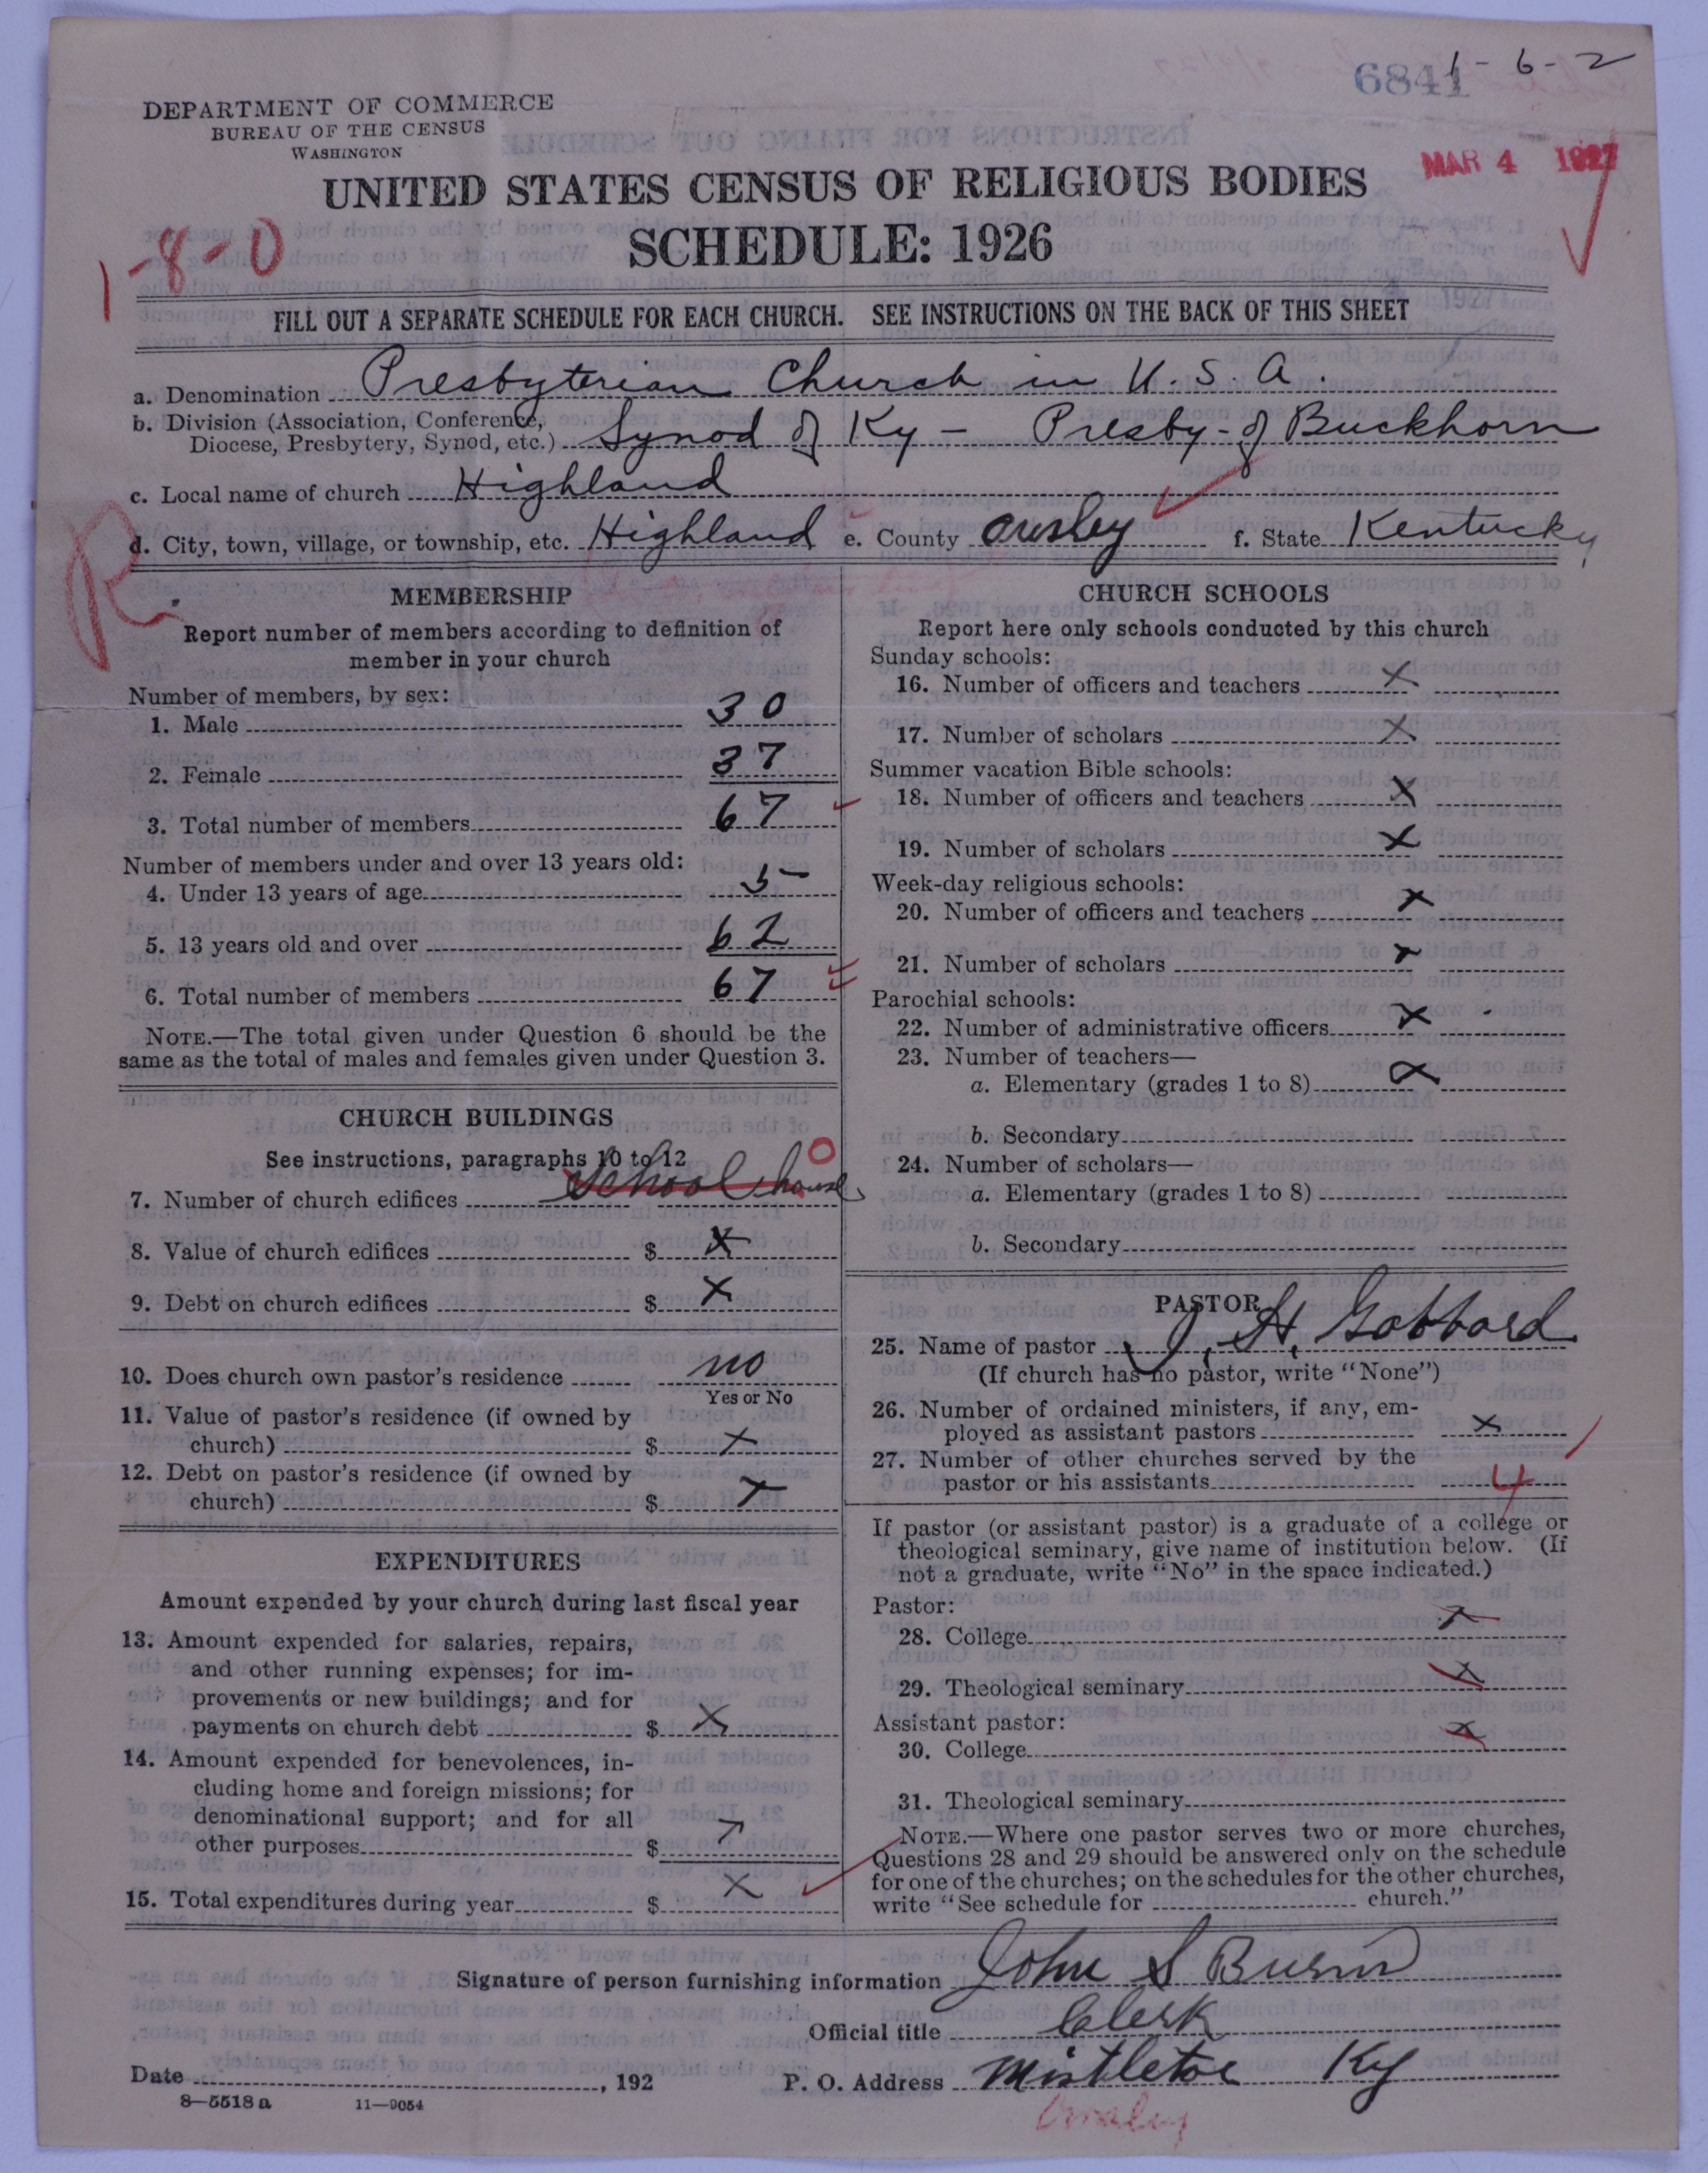 6841 1-6-2
DEPARTMENT OF COMMERCE
BUREAU OF THE CENSUS
WASHINGTON
MAR 4 1927
UNITED STATES CENSUS OF RELIGIOUS BODIES
SCHEDULE: 1926
1-8-0
FILL OUT A SEPARATE SCHEDULE FOR EACH CHURCH. SEE INSTRUCTIONS ON THE BACK OF THIS SHEET
a. Denomination Presbyterian Church in U.S.A.
b. Division (Association, Conference,
Diocese, Presbytery, Synod, etc.) Synod of Ky - Presby- of Buckhorn
c. Local name of church Highland
d. City, town, village, or township, etc. Highland e. County Owsley f. State Kentucky
R
MEMBERSHIP
Report number of members according to definition of
member in your church
Number of members, by sex:
1. Male 30
2. Female 37
3. Total number of members 67
Number of members under and over 13 years old:
4. Under 13 years of age 5
5. 13 years old and over 62
6. Total number of members 67
NOTE.—The total given under Question 6 should be the
same as the total of males and females given under Question 3.
CHURCH BUILDINGS
See instructions, paragraphs 10 to 12
7. Number of church edifices School house 0
8. Value of church edifices $ X
9. Debt on church edifices $ X
10. Does church own pastor's residence no
Yes or No
11. Value of pastor's residence (if owned by
church) $ X
12. Debt on pastor's residence (if owned by
church) $ X
EXPENDITURES
Amount expended by your church during last fiscal year
13. Amount expended for salaries, repairs,
and other running expenses; for im-
provements or new buildings; and for
payments on church debt $ X
14. Amount expended for benevolences, in-
cluding home and foreign missions; for
denominational support; and for all
other purposes $
15. Total expenditures during year $ X
CHURCH SCHOOLS
Report here only schools conducted by this church
Sunday schools:
16. Number of officers and teachers X
17. Number of scholars X
Summer vacation Bible schools:
18. Number of officers and teachers X
19. Number of scholars X
Week-day religious schools:
20. Number of officers and teachers X
21. Number of scholars X
Parochial schools:
22. Number of administrative officers X
23. Number of teachers—
a. Elementary (grades 1 to 8) X
b. Secondary
24. Number of scholars—
a. Elementary (grades 1 to 8)
b. Secondary
PASTOR
25. Name of pastor J. H. Gabbard
(If church has no pastor, write "None")
26. Number of ordained ministers, if any, em-
ployed as assistant pastors X
27. Number of other churches served by the
pastor or his assistants 4
If pastor (or assistant pastor) is a graduate of a college or
theological seminary, give name of institution below. (If
not a graduate, write "No" in the space indicated.)
Pastor:
28. College X
29. Theological seminary X
Assistant pastor:
30. College X
31. Theological seminary
NOTE.—Where one pastor serves two or more churches,
Questions 28 and 29 should be answered only on the schedule
for one of the churches; on the schedules for the other churches,
write "See schedule for church."
Signature of person furnishing information John S Burns
Official title Clerk
Date , 192 P. O. Address Mistletoe Ky
8—5518 a 11—9054
Owsley